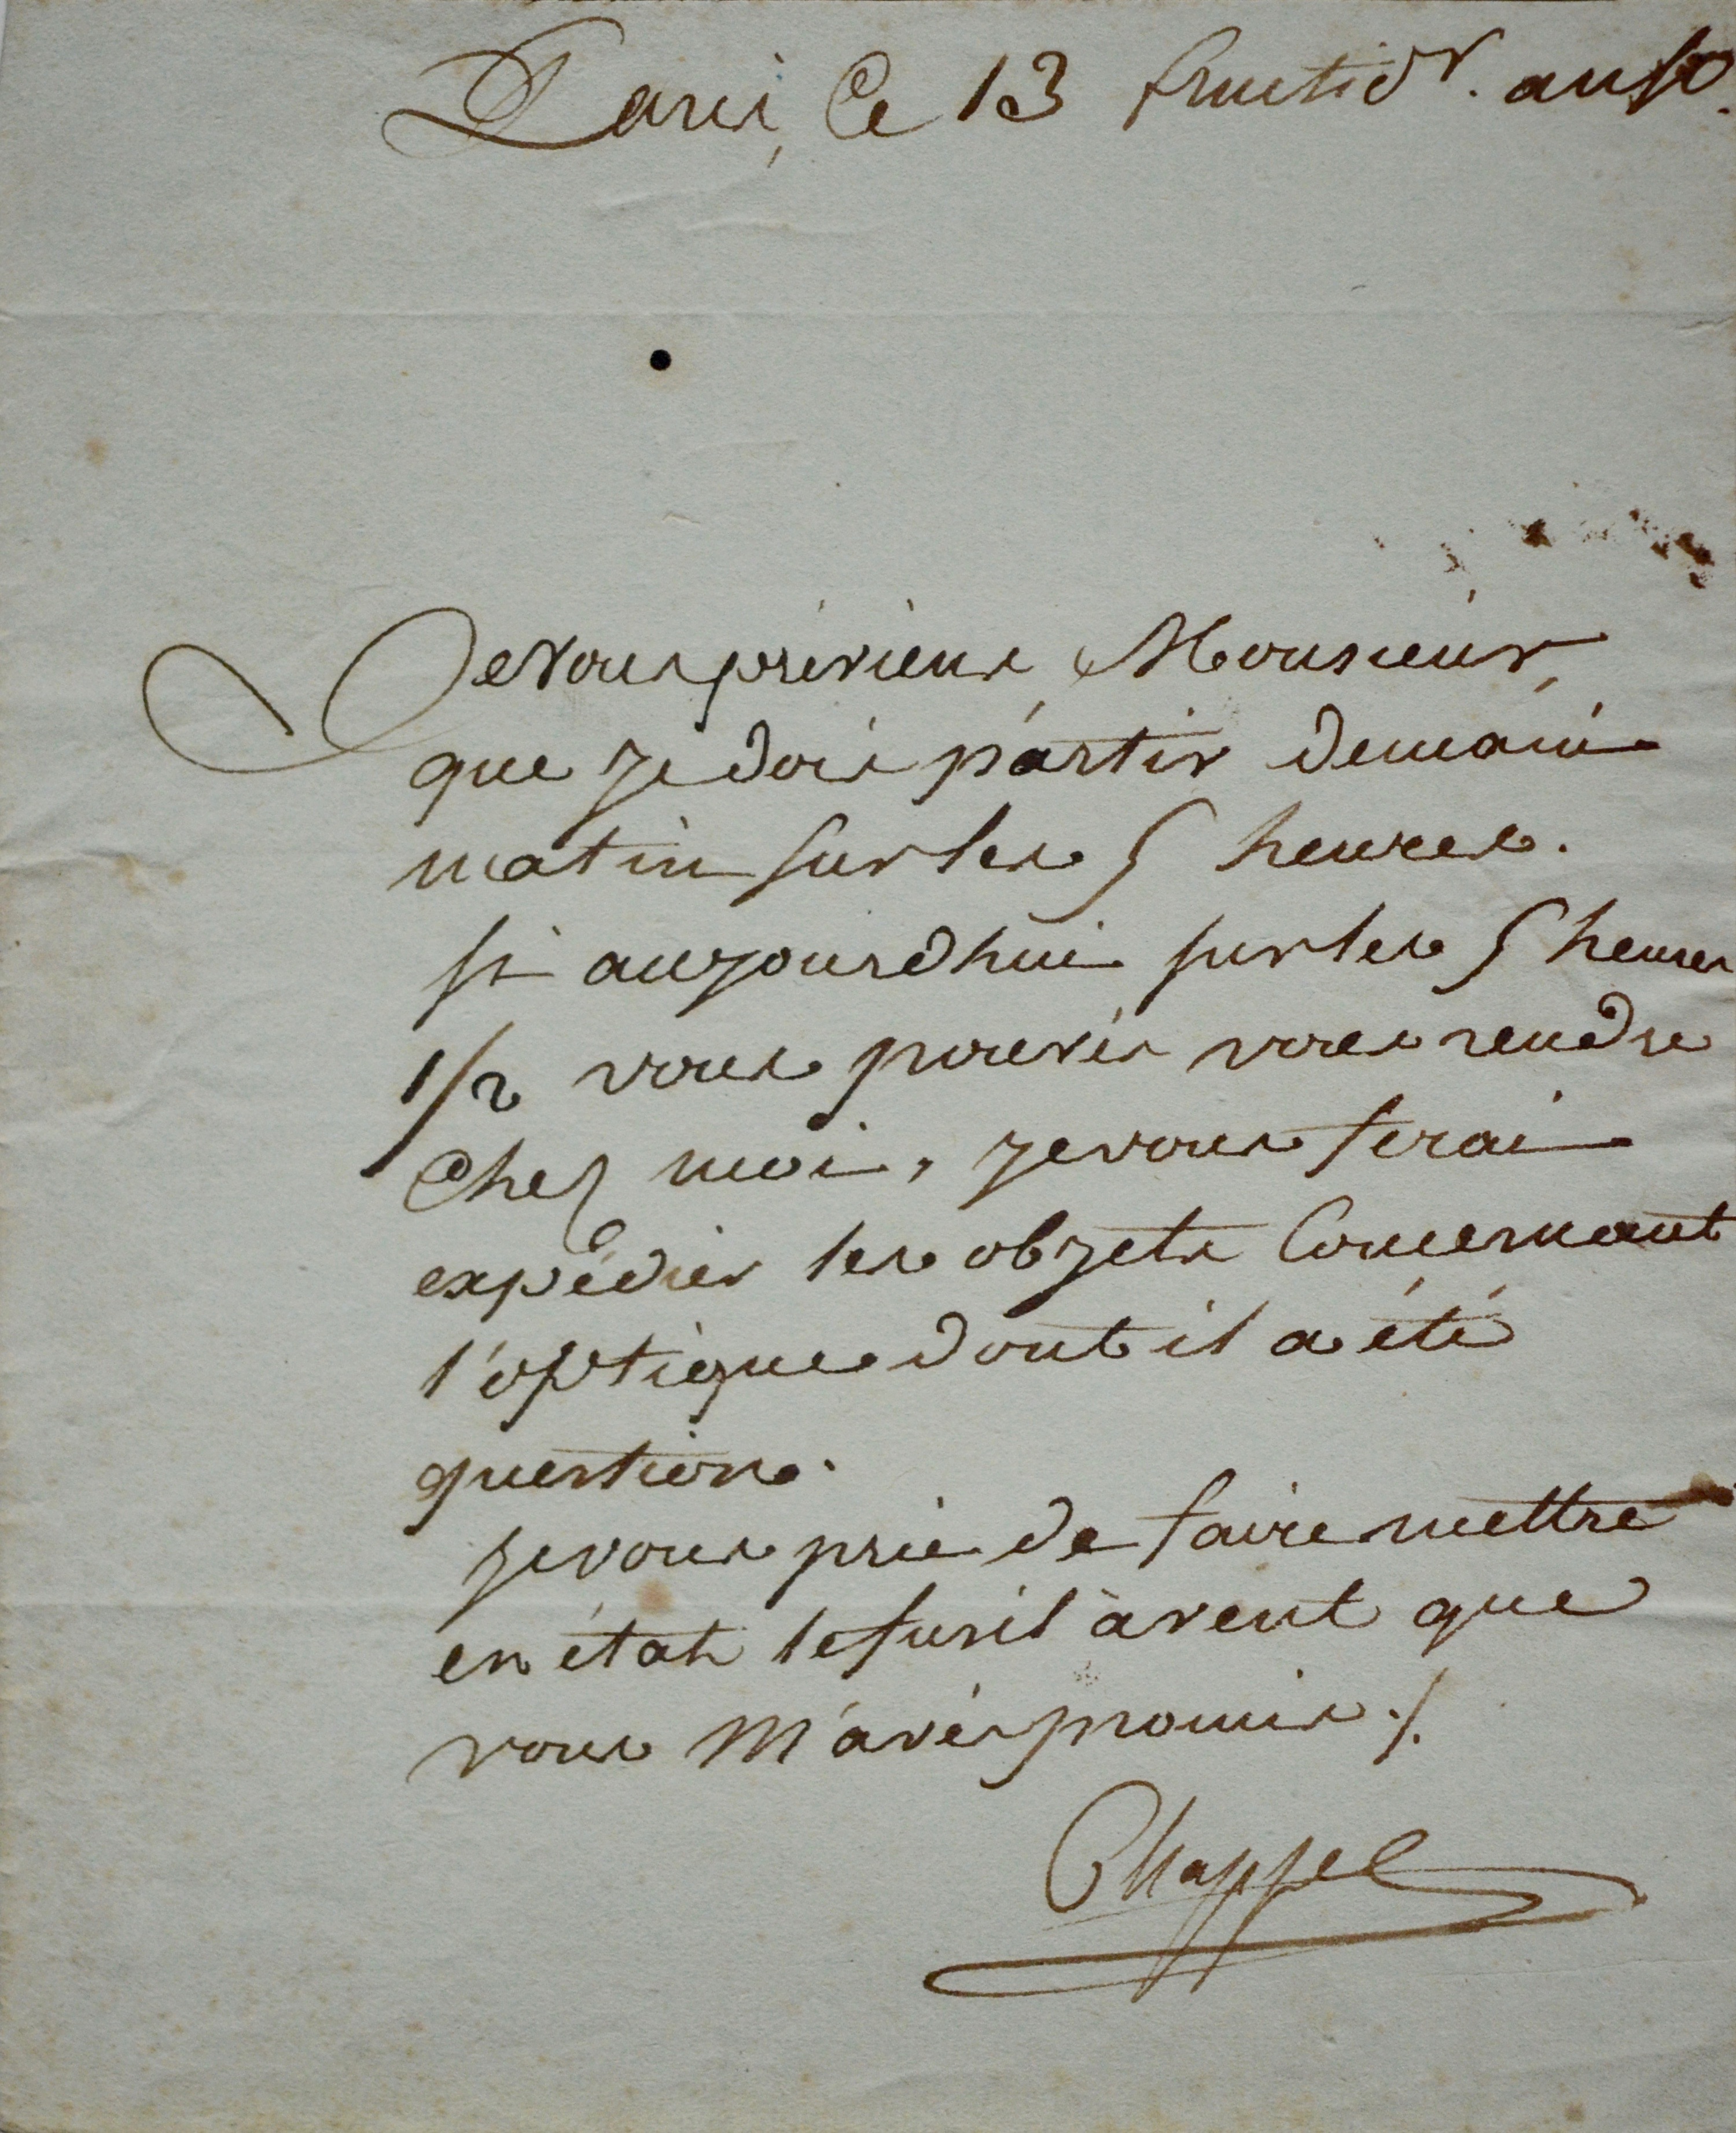 Paris, Ce 13 fructidr. an 10.
Je vous préviens, Monsieur,
que je dois partir demain
matin sur les 5 heures.
si aujourdhui sur les 5 heures
1/2 vous pouvés vous rendre
Chez moi, je vous ferai
expédier les objets Concernant
l'optique dont il a été
question.
je vous prie de faire mettre
en état le fusil à vent que
vous m'avés promis ./.
Chappe